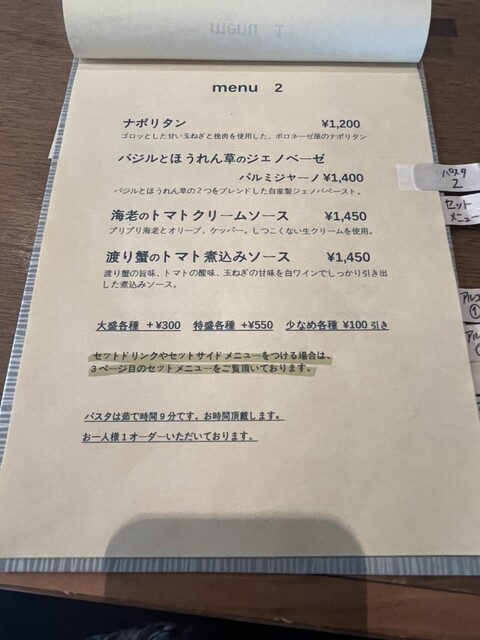 menu 1
menu 2
ナポリタン ¥1,200
ゴロッとした甘い玉ねぎと挽肉を使用した、ボロネーゼ風のナポリタン
バジルとほうれん草のジェノベーゼ
パルミジャーノ ¥1,400
バジルとほうれん草の2つをブレンドした自家製ジェノバペースト。
海老のトマトクリームソース ¥1,450
プリプリ海老とオリーブ、ケッパー。しつこくない生クリームを使用。
渡り蟹のトマト煮込みソース ¥1,450
渡り蟹の旨味、トマトの酸味、玉ねぎの甘味を白ワインでしっかり引き出
した煮込みソース。
大盛各種 +¥300 特盛各種 +¥550 少なめ各種 ¥100 引き
セットドリンクやセットサイドメニューをつける場合は、
3ページ目のセットメニューをご覧頂いております。
パスタは茹で時間9分です。お時間頂戴します。
お一人様1オーダーいただいております。
パスタ
2
セット
メニュー
アルコ
①
アル